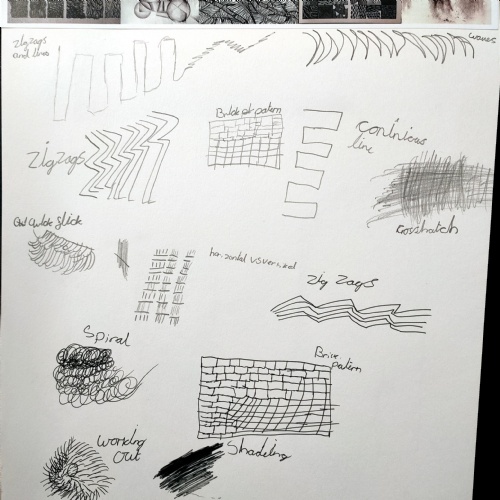 zigzags
and lines
waves
Zigzags
patern
continious
line
Crosshatch
flick
horizontal vs vertical
Zig Zags
Spiral
Brick
patern
Working
out
Shadeing